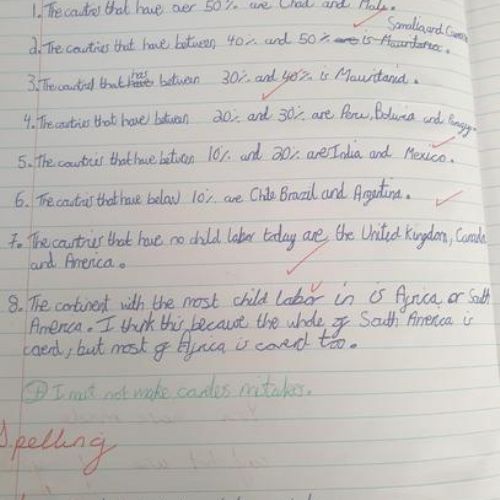 1. The coutries that have over 50% are Chad and Mali.
Somalia and
2. The coutries that have between 40% and 50% are is Mauritania.
3. The coutries that have has between 30% and 40% is Mauritania.
4. The coutries that have between 20% and 30% are Peru, Bolivia and
5. The coutries that have between 10% and 20% are India and Mexico.
6. The coutries that have below 10% are Chile Brazil and Argentina.
7. The coutries that have no child labor today are the United Kingdom, Canada
and America.
8. The continent with the most child labor in is Africa or South
America. I think this because the whole of South America is
coverd, but most of Africa is coverd too.
I must not make careles mistakes.
Spelling